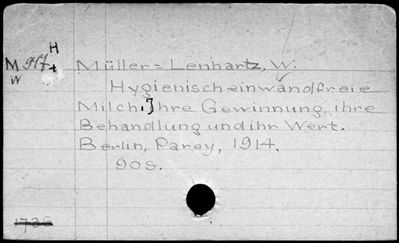 H
M 917+ Müller=Lenhartz, W.
W
Hygienisch einwandfreie
Milch. Ihre Gewinnung, ihre
Behandlung und ihr Wert.
Berlin, Parey, 1914.
90S.
1735